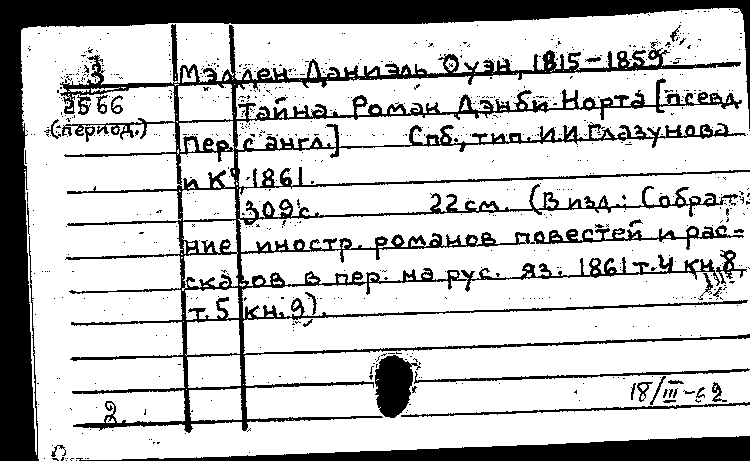 3
2566
(период.)
Мэдден Даниэль Оуэн, 1815-1859
Тайна. Роман Дэнби Норта [псевд.
Пер. с англ.] Спб., тип. И.И. Глазунова
и К⁰, 1861.
309с. 22 см. (В изд.: Собра-
ние иностр. романов повестей и рас-
сказов в пер. на рус. яз. 1861 т.4 кн.8,
т.5 кн.9).
18/III-62
2.